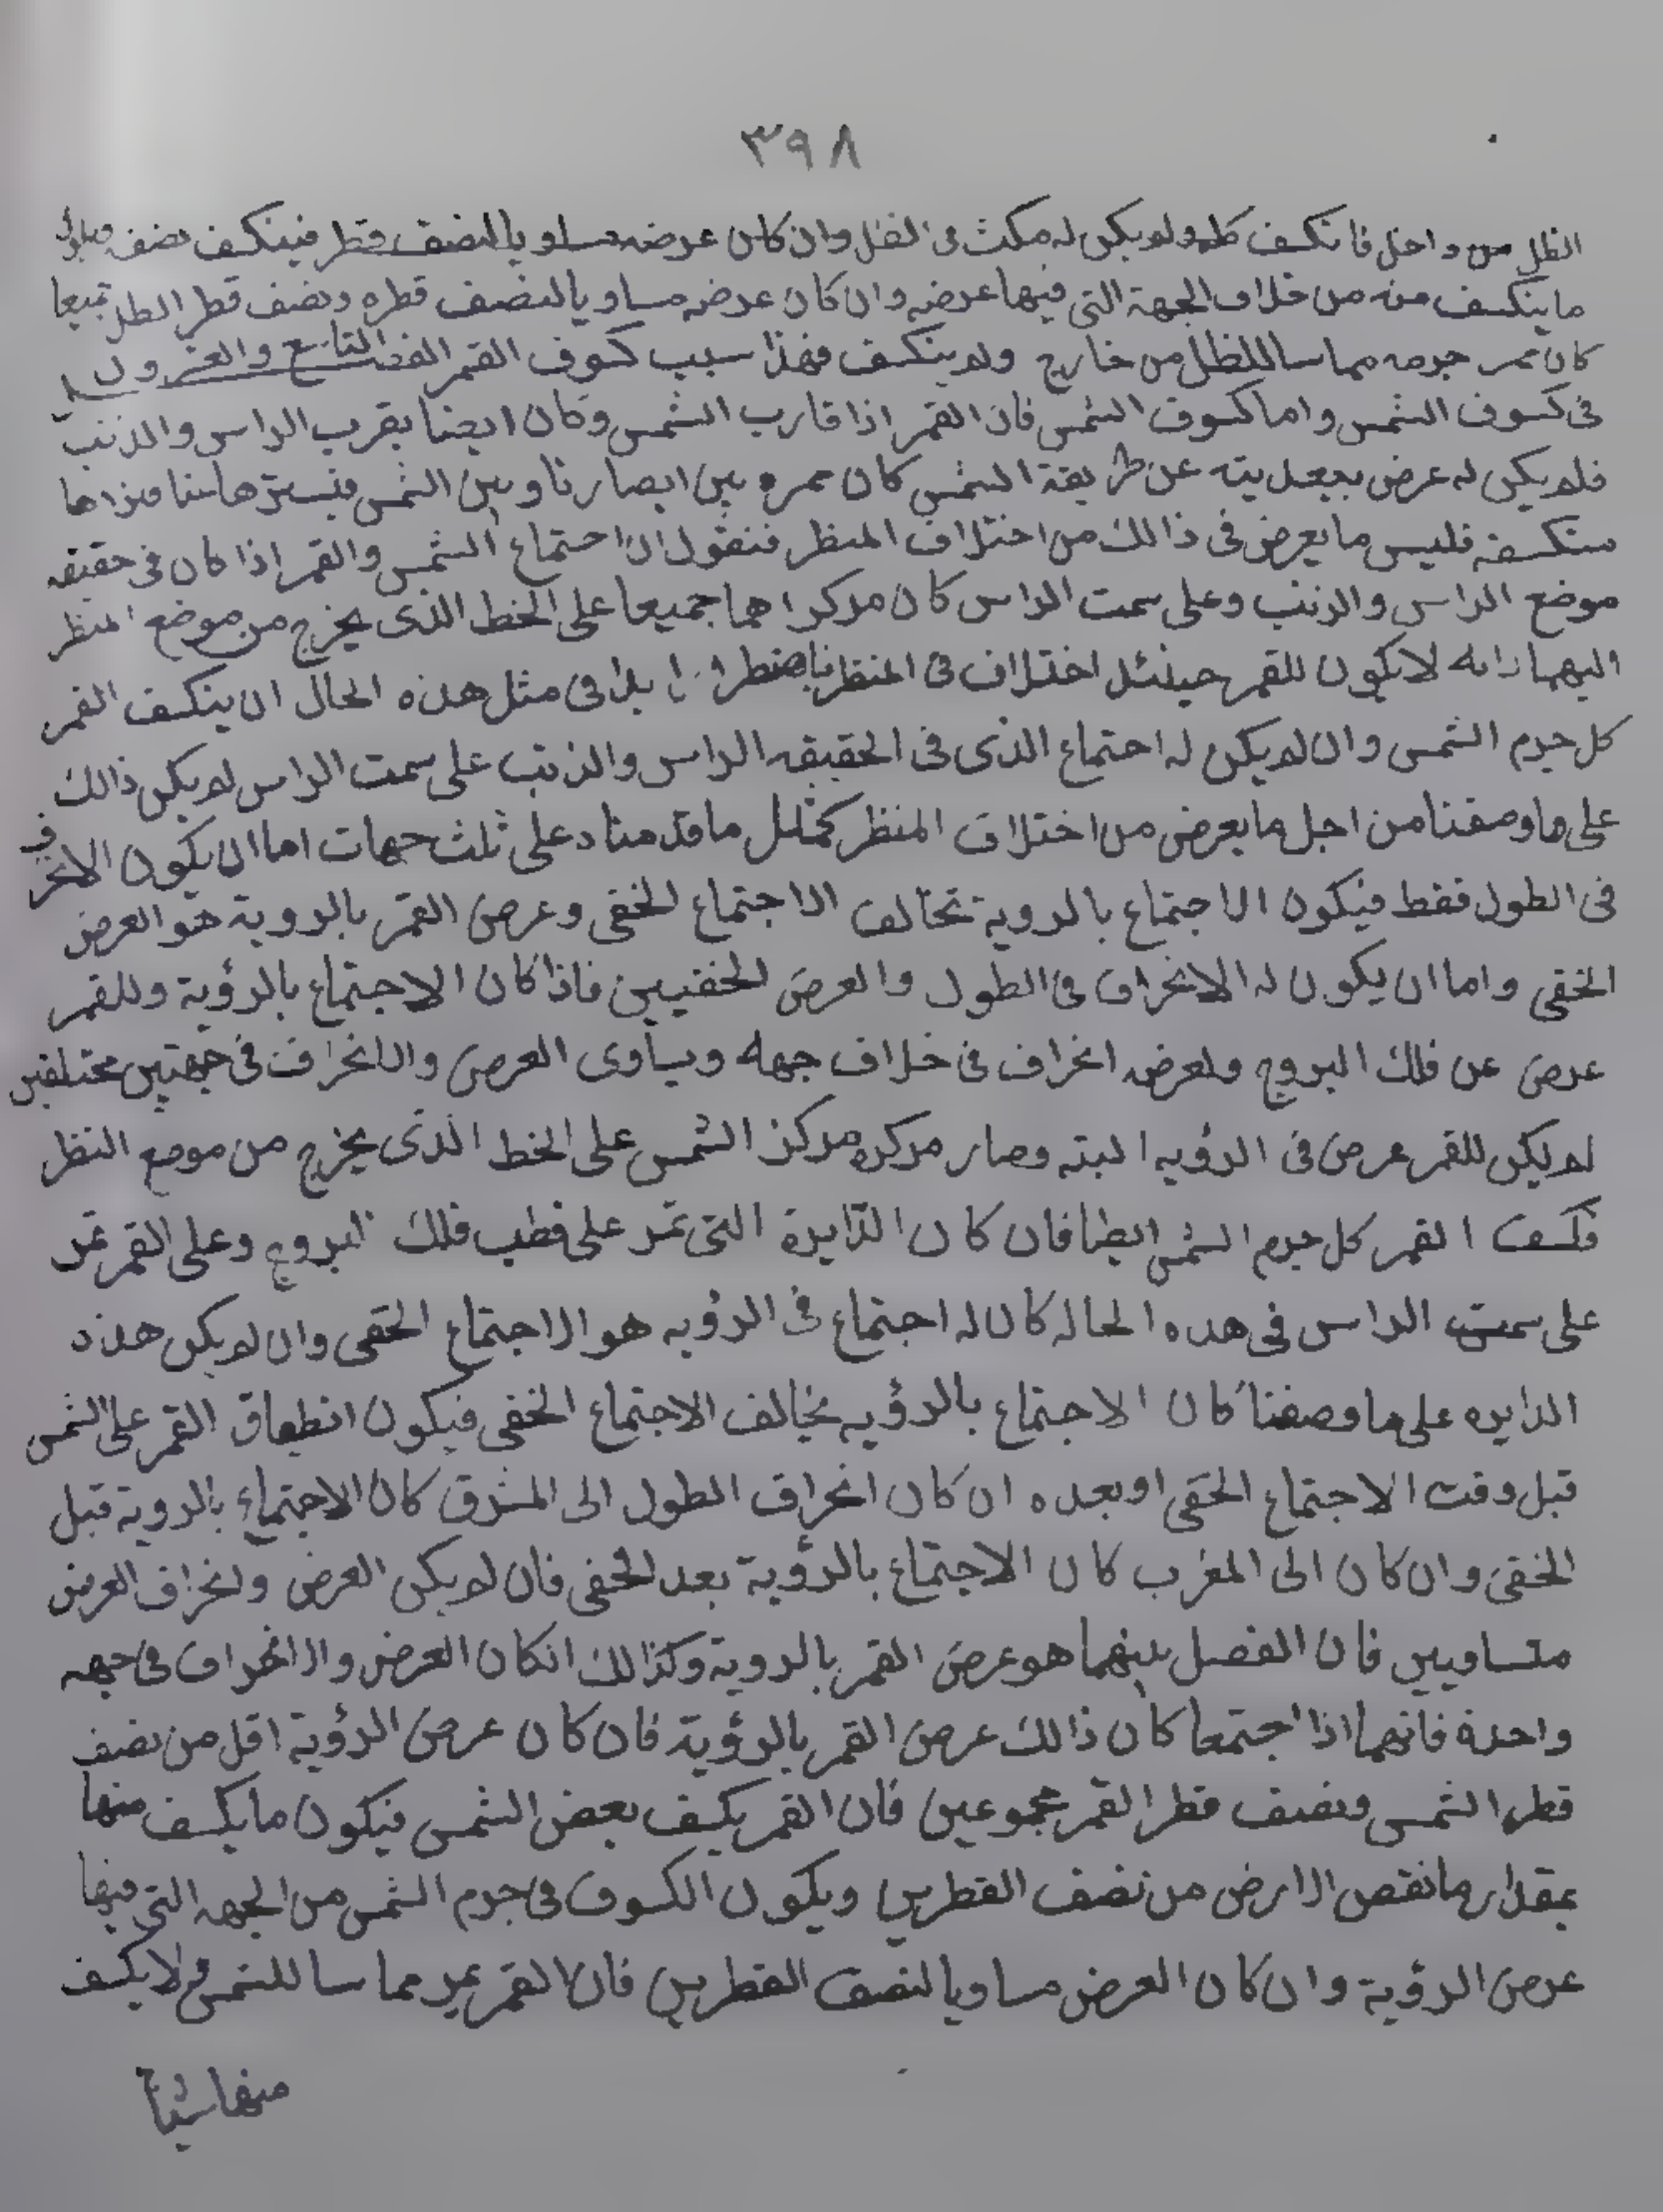 ٣٩٨
الظل من داخل فانكسف كله ولم يكن له مكث فى الظل وان كان عرضه مساويا لنصف قطر فينكسف نصفه
ما ينكسف منه من خلاف الجهة التى فيها عرضه وان كان عرضه مساويا لنصف قطره ونصف قطر الظل جميعا
كان ممر جرمه مماسا للظل من خارج ولم ينكسف فهذا سبب كسوف القمر الفصل التاسع والعشرون
فى كسوف الشمس واما كسوف الشمس فان القمر اذا قارب الشمس وكان ايضا بقرب الراس والذنب
فلم يكن له عرض عن طريقة الشمس كان ممره بين ابصارنا وبين الشمس فيسترها عنا فنراها
منكسفه فليس ما يعرض فى ذالك من اختلاف المنظر فنقول ان احتماع الشمس والقمر اذا كان فى حقيقه
موضع الراس والذنب وعلى سمت الراس كان مركزاهما جميعا على الخط الذى يخرج من موضع المنظر
اليهما لانه لا يكون للقمر حينئذ اختلاف فى المنظر فباضطرار ابدا فى مثل هذه الحال ان ينكسف القمر
كل جرم الشمس وان لم يكن له احتماع الذى فى الحقيقه الراس والذنب على سمت الراس لم يكن ذالك
على ما وصفنا من اجل ما يعرض من اختلاف المنظر كمثل ما قدمناه على ثلث جهات اما ان يكون الانحراف
فى الطول فقط فيكون الاجتماع بالروية تخالف الاجتماع الخفى وعرض القمر بالروية هو العرض
الخفى واما ان يكون له الانحراف فى الطول والعرض الخفيين فاذا كان الاجتماع بالرؤية وللقمر
عرض عن فلك البروج ولعرضه انحراف فى خلاف جهه وساوى العرض والانحراف فى جهتين مختلفين
لم يكن للقمر عرض فى الرؤيه البته وصار مركزه مركز الشمس على الخط الذى يخرج من موضع النظر
فكسف القمر كل جرم الشمس ايضا فان كان الدايرة التى تمر على قطب فلك البروج وعلى القمر تمر
على سمت الراس فى هده الحاله كان له اجتماع فى الرؤيه هو الاجتماع الخفى وان لم يكن هذه
الدايره على ما وصفنا كان الاجتماع بالرؤيه يخالف الاجتماع الخفى فيكون انطباق القمر على الشمس
قبل وقت الاجتماع الخفى او بعده ان كان انحراف الطول الى المشرق كان الاجتماع بالروية قبل
الخفى وان كان الى المغرب كان الاجتماع بالرؤية بعد الخفى فان لم يكن العرض وانحراف العرض
متساويين فان الفصل بينهما هو عرض القمر بالروية وكذالك انكان العرض والانحراف فى جهه
واحدة فانهما اذا اجتمعا كان ذالك عرض القمر بالرؤية فان كان عرض الرؤية اقل من نصف
قطر الشمس ونصف قطر القمر مجموعين فان القمر يكسف بعض الشمس فيكون ما يكسف منها
بمقدار ما نقص الارض من نصف القطرين ويكون الكسوف فى جرم الشمس من الجهه التى فيها
عرض الرؤية وان كان العرض مساويا لنصف القطرين فان القمر يمر مماسا للشمس لا يكسف
منها شيا